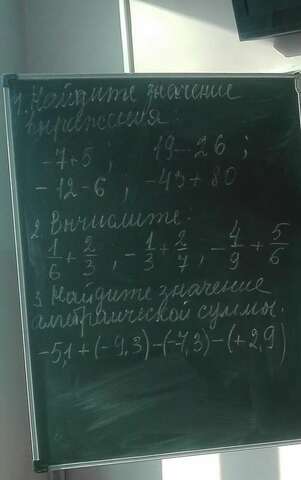 1. Найдите значение
выражения:
-7+5; 19-26;
-12-6, -43+80
2. Вычислите:
1/6 + 2/3, -1/3 + 2/7, -4/9 + 5/6
3. Найдите значение
алгебраической суммы.
-5,1+(-9,3)-(-7,3)-(+2,9)